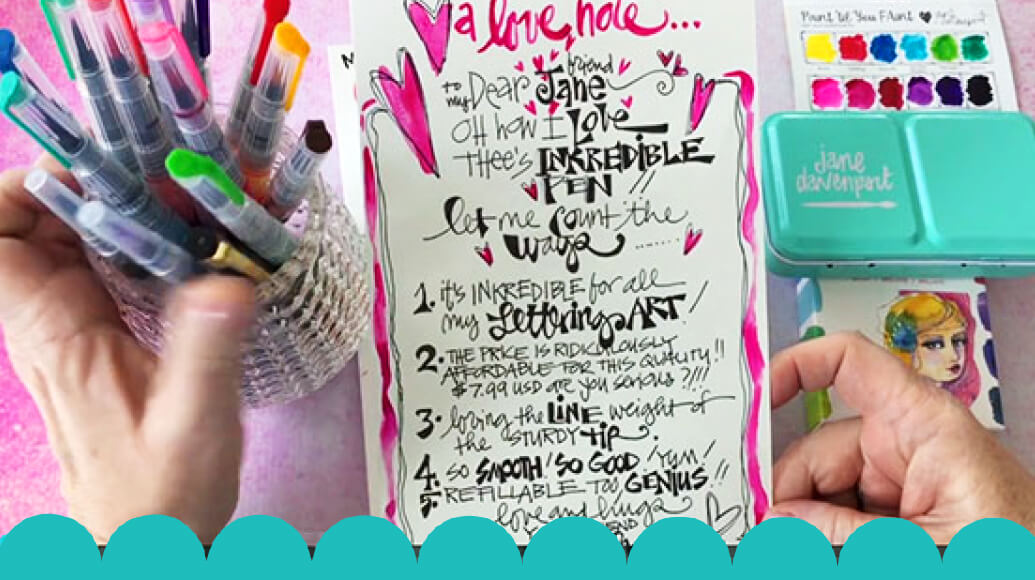 a love note...
to my Dear friend Jane
OH how I Love
THEE'S INKREDIBLE
PEN!!
let me count the
ways ......
1. it's INKREDIBLE for all
my Lettering ART!
2. THE PRICE IS RIDICULOUSLY
AFFORDABLE FOR THIS QUALITY!!
$7.99 USD are you serious?!!!
3. loving the LINE weight of
the STURDY TIP.
4. SO SMOOTH! SO GOOD! Yum!
5. REFILLABLE TOO GENIUS!!
love and hugs
Paint 'til You Faint
jane
davenport